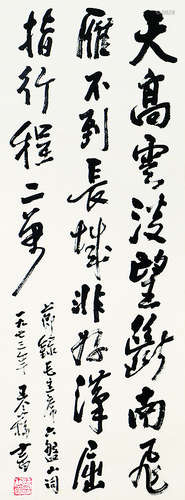 天高雲淡望斷南飛
雁不到長城非好漢屈
指行程二萬
節錄毛主席六盤山詞
一九七三年王个簃書